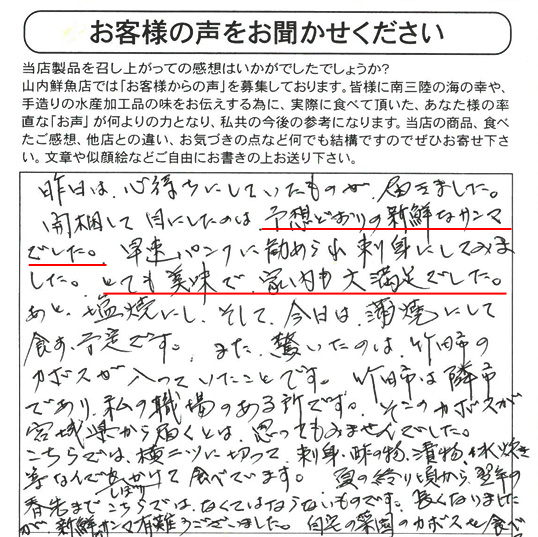 お客様の声をお聞かせください
当店製品を召し上がっての感想はいかがでしたでしょうか?
山内鮮魚店では「お客様からの声」を募集しております。皆様に南三陸の海の幸や、
手造りの水産加工品の味をお伝えする為に、実際に食べて頂いた、あなた様の率
直な「お声」が何よりの力となり、私共の今後の参考になります。当店の商品、食べ
たご感想、他店との違い、お気づきの点など何でも結構ですのでぜひお寄せ下さ
い。文章や似顔絵などご自由にお書きの上お送り下さい。
昨日は、心待ちにしていたものが、届きました。
開梱して目にしたのは予想どおりの新鮮なサンマ
でした。早速パンフに勧められ刺身にしてみま
した。とても美味で、家内も大満足でした。
あと、塩焼にし、そして、今日は、蒲焼にして
食す予定です。また、驚いたのは、竹田市の
カボスが入っていたことです。竹田市は隣市
であり、私の職場のある所です。そこのカボスが
宮城県から届くとは、思ってもみませんでした。
こちらでは、横二ツに切って、刺身・酢の物、漬物、
等なんでもかけて食べています。夏の終り頃から、翌年の
しぼり
春先までこちらでは、なくてはならないものです。長くなりました
が、新鮮なサンマ有難うございました。自宅の菜園のカボスも食べ